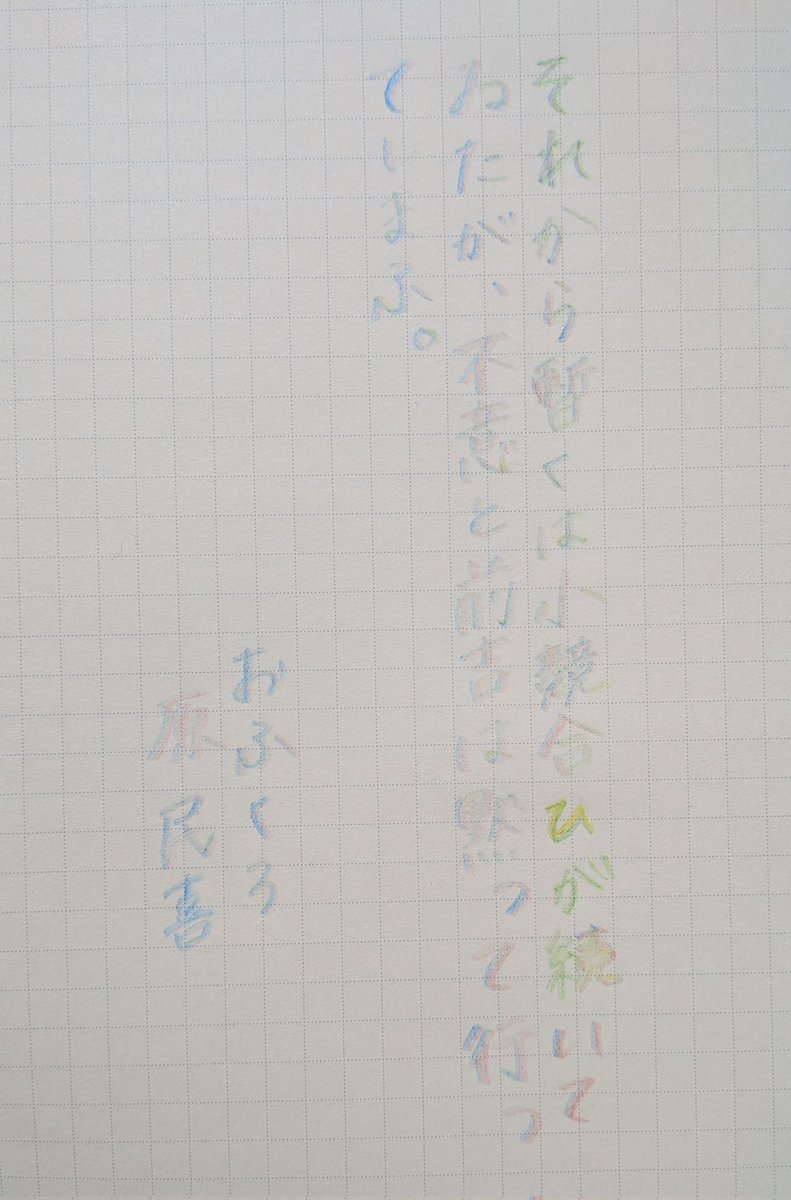 それから暫くは小競合ひが続いて
ゐたが、不意と前吉は黙って行っ
てしまふ。
おふくろ
原民喜